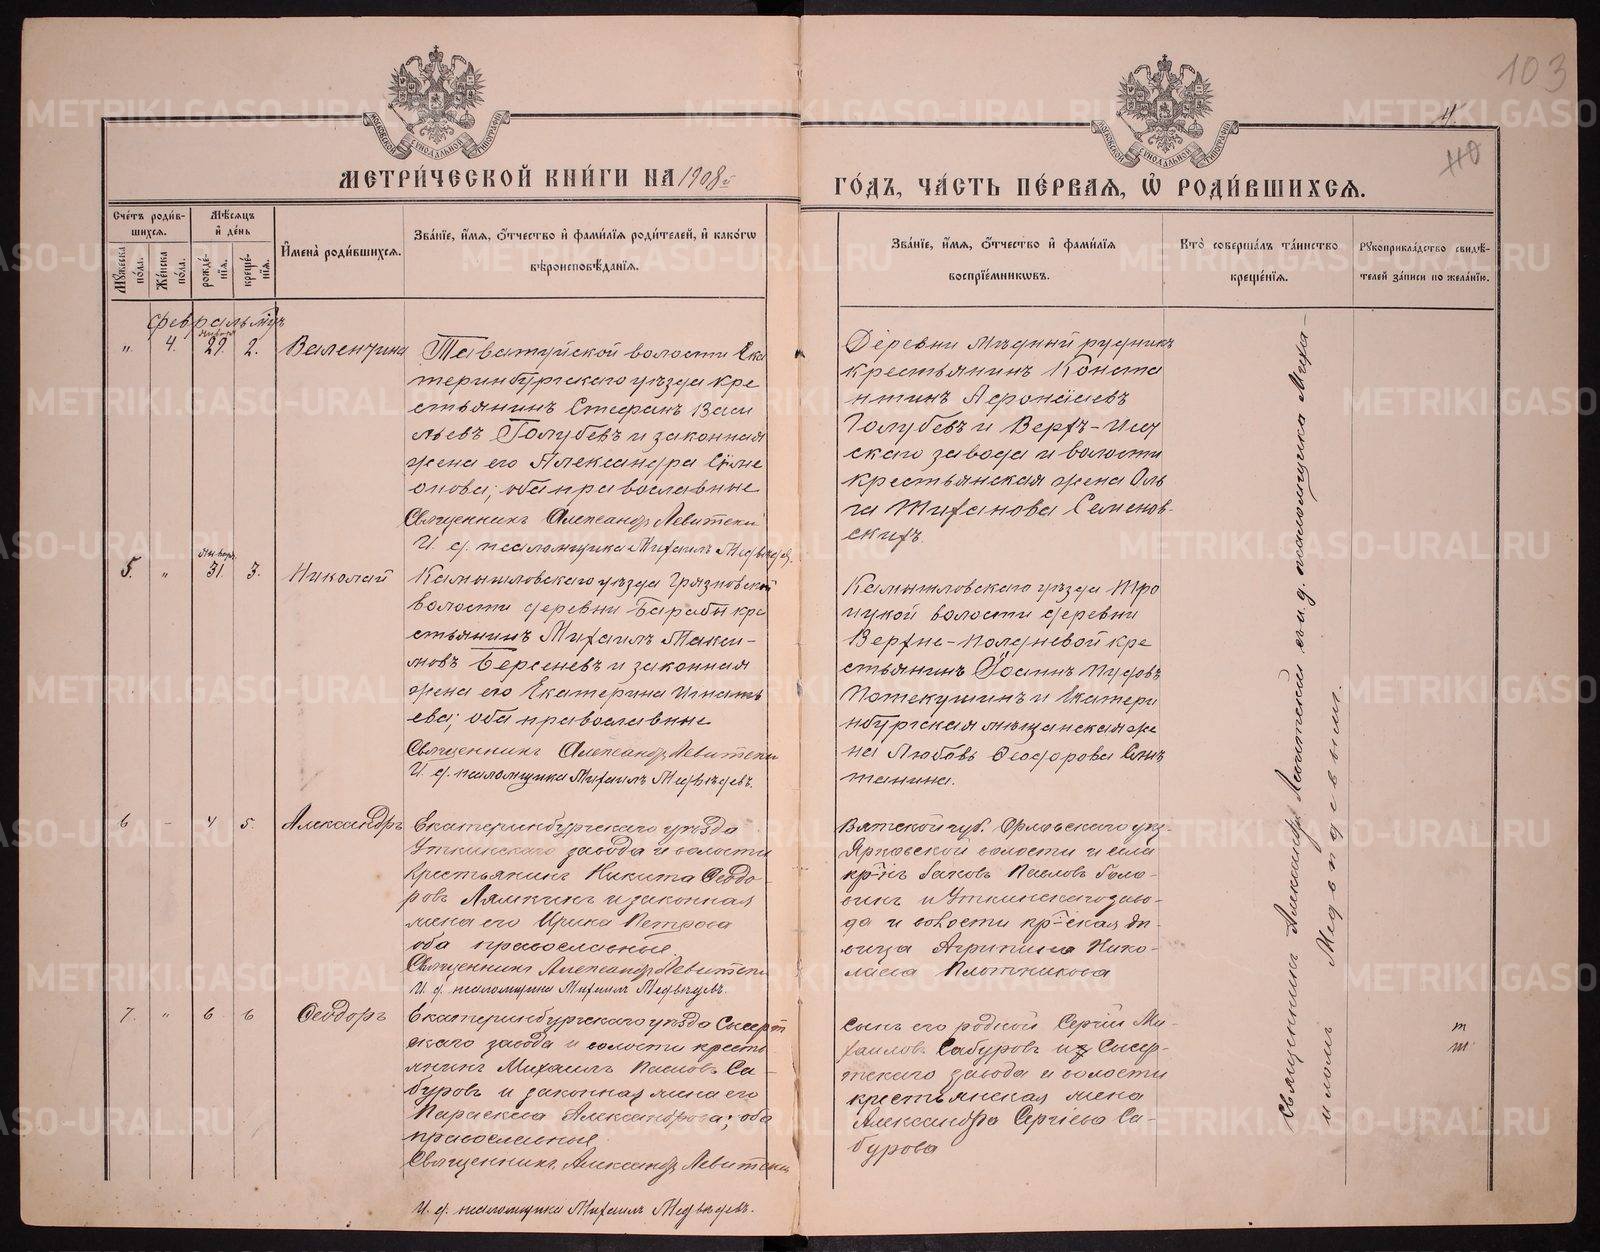 103
4.
110
МОСКОВСКОЙ СѴНОДАЛЬНОЙ ТИПОГРАФІИ
МОСКОВСКОЙ СѴНОДАЛЬНОЙ ТИПОГРАФІИ
МЕТРИ́ЧЕСКОЙ КНИ́ГИ НА 1908й
ГО́ДЪ, ЧА́СТЬ ПЕ́РВАѦ, Ѡ҆ РОДИ́ВШИХСѦ.
Сче́тъ роди́в-
шихся.
Мѣ́сѧцъ
и҆ де́нь
Мꙋ́жеска по́ла.
Же́нска по́ла.
рожде́-
нїѧ.
креще́-
нїѧ.
И҆мена̀ роди́вшихся.
Зва́нїе, и҆́мѧ, ѻ҆́тчество и҆ фами́лїѧ роди́телей, и҆ како́гѡ
вѣроисповѣ́данїѧ.
Зва́нїе, и҆́мѧ, ѻ҆́тчество и҆ фами́лїѧ
воспрїе́мниковъ.
Кто̀ соверша́лъ та́инство
креще́нїѧ.
Рꙋкоприкла́дство свидѣ́-
телей за́писи по жела́нїю.
февраль м-цъ
января
" 4. 29. 2. Валентина
Таватуйской волости Ека
теринбургскаго уѣзда кре
стьянинъ Стефанъ Васи
льевъ Голубевъ и законная
жена его Александра Симе
онова; оба православные
Священникъ Александръ Левитскій
И. д. псаломщика Михаилъ Медвѣдевъ.
Деревни Мѣдный рудникъ
крестьянинъ Конста
нтинъ Афонасіевъ
Голубевъ и Верхъ-Исет
скаго завода и волости
крестьянская жена Оль
га
Семенов-
скихъ
января
5. " 31. 3. Николай
Камышловскаго уѣзда Грязновской
волости деревни Барабы кре
стьянинъ Михаилъ Макси-
мовъ Берсеневъ и законная
жена его Екатерина Игнать
ева; оба православные
Священникъ Александръ Левитскій
И. д. псаломщика Михаилъ Медвѣдевъ.
Камышловскаго уѣзда Тро
ицкой волости деревни
Верхне-полдневой кре
стьянинъ Іоаннъ
Потекушинъ и Екатери
нбургская мѣщанская же
на Любовь Ѳеодорова
6 - 4 5. Александръ
Екатеринбургскаго уѣзда
Уткинскаго завода и волости
крестьянинъ Никита Ѳеодо-
ровъ Лямкинъ и законная
жена его Ирина Петрова
оба православные
Священникъ Александръ Левитскій
И. д. псаломщика Михаилъ Медвѣдевъ.
Вятской губ. Орловскаго уѣз-
волости и села
кр-нъ Іаковъ Павловъ Голо-
винъ и Уткинскаго заво-
да и волости кр-ская дѣ-
вица Агрипина Нико-
лаева Плотникова
7. " 6 6 Ѳеодоръ
Екатеринбургскаго уѣзда Сысерт
скаго завода и волости кресть
янинъ Михаилъ Павловъ Са-
буровъ и законная жена его
Параскева Александрова; оба
православные
Священникъ Александръ Левитскій
И. д. псаломщика Михаилъ Медвѣдевъ.
Сынъ его родной Сергій Ми-
хаиловъ Сабуровъ и Сысер-
тскаго завода и волости
крестьянская жена
Александра Сергіева Са-
бурова
Священникъ Александръ Левитскій съ и. д. псаломщика Миха-
иломъ Медвѣдевымъ.
METRIKI.GASO-URAL.RU